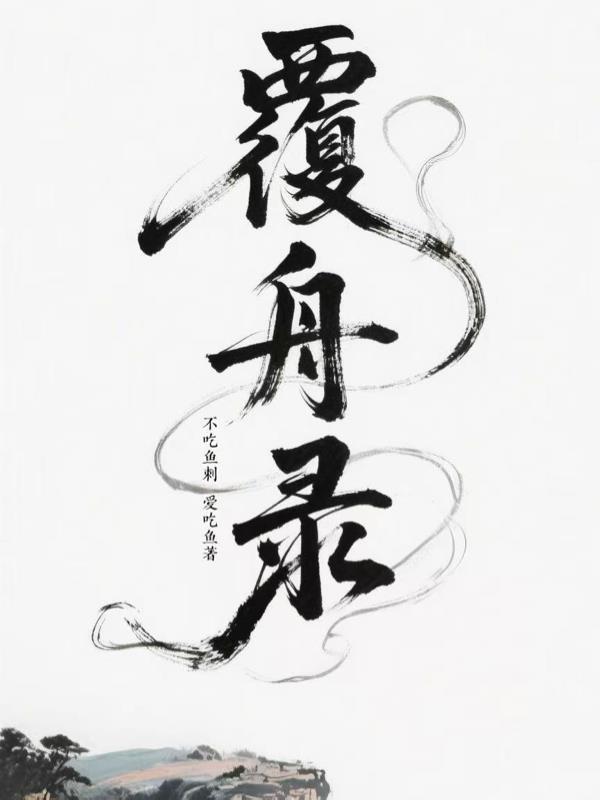 覆舟录
不吃鱼刺 爱吃鱼著